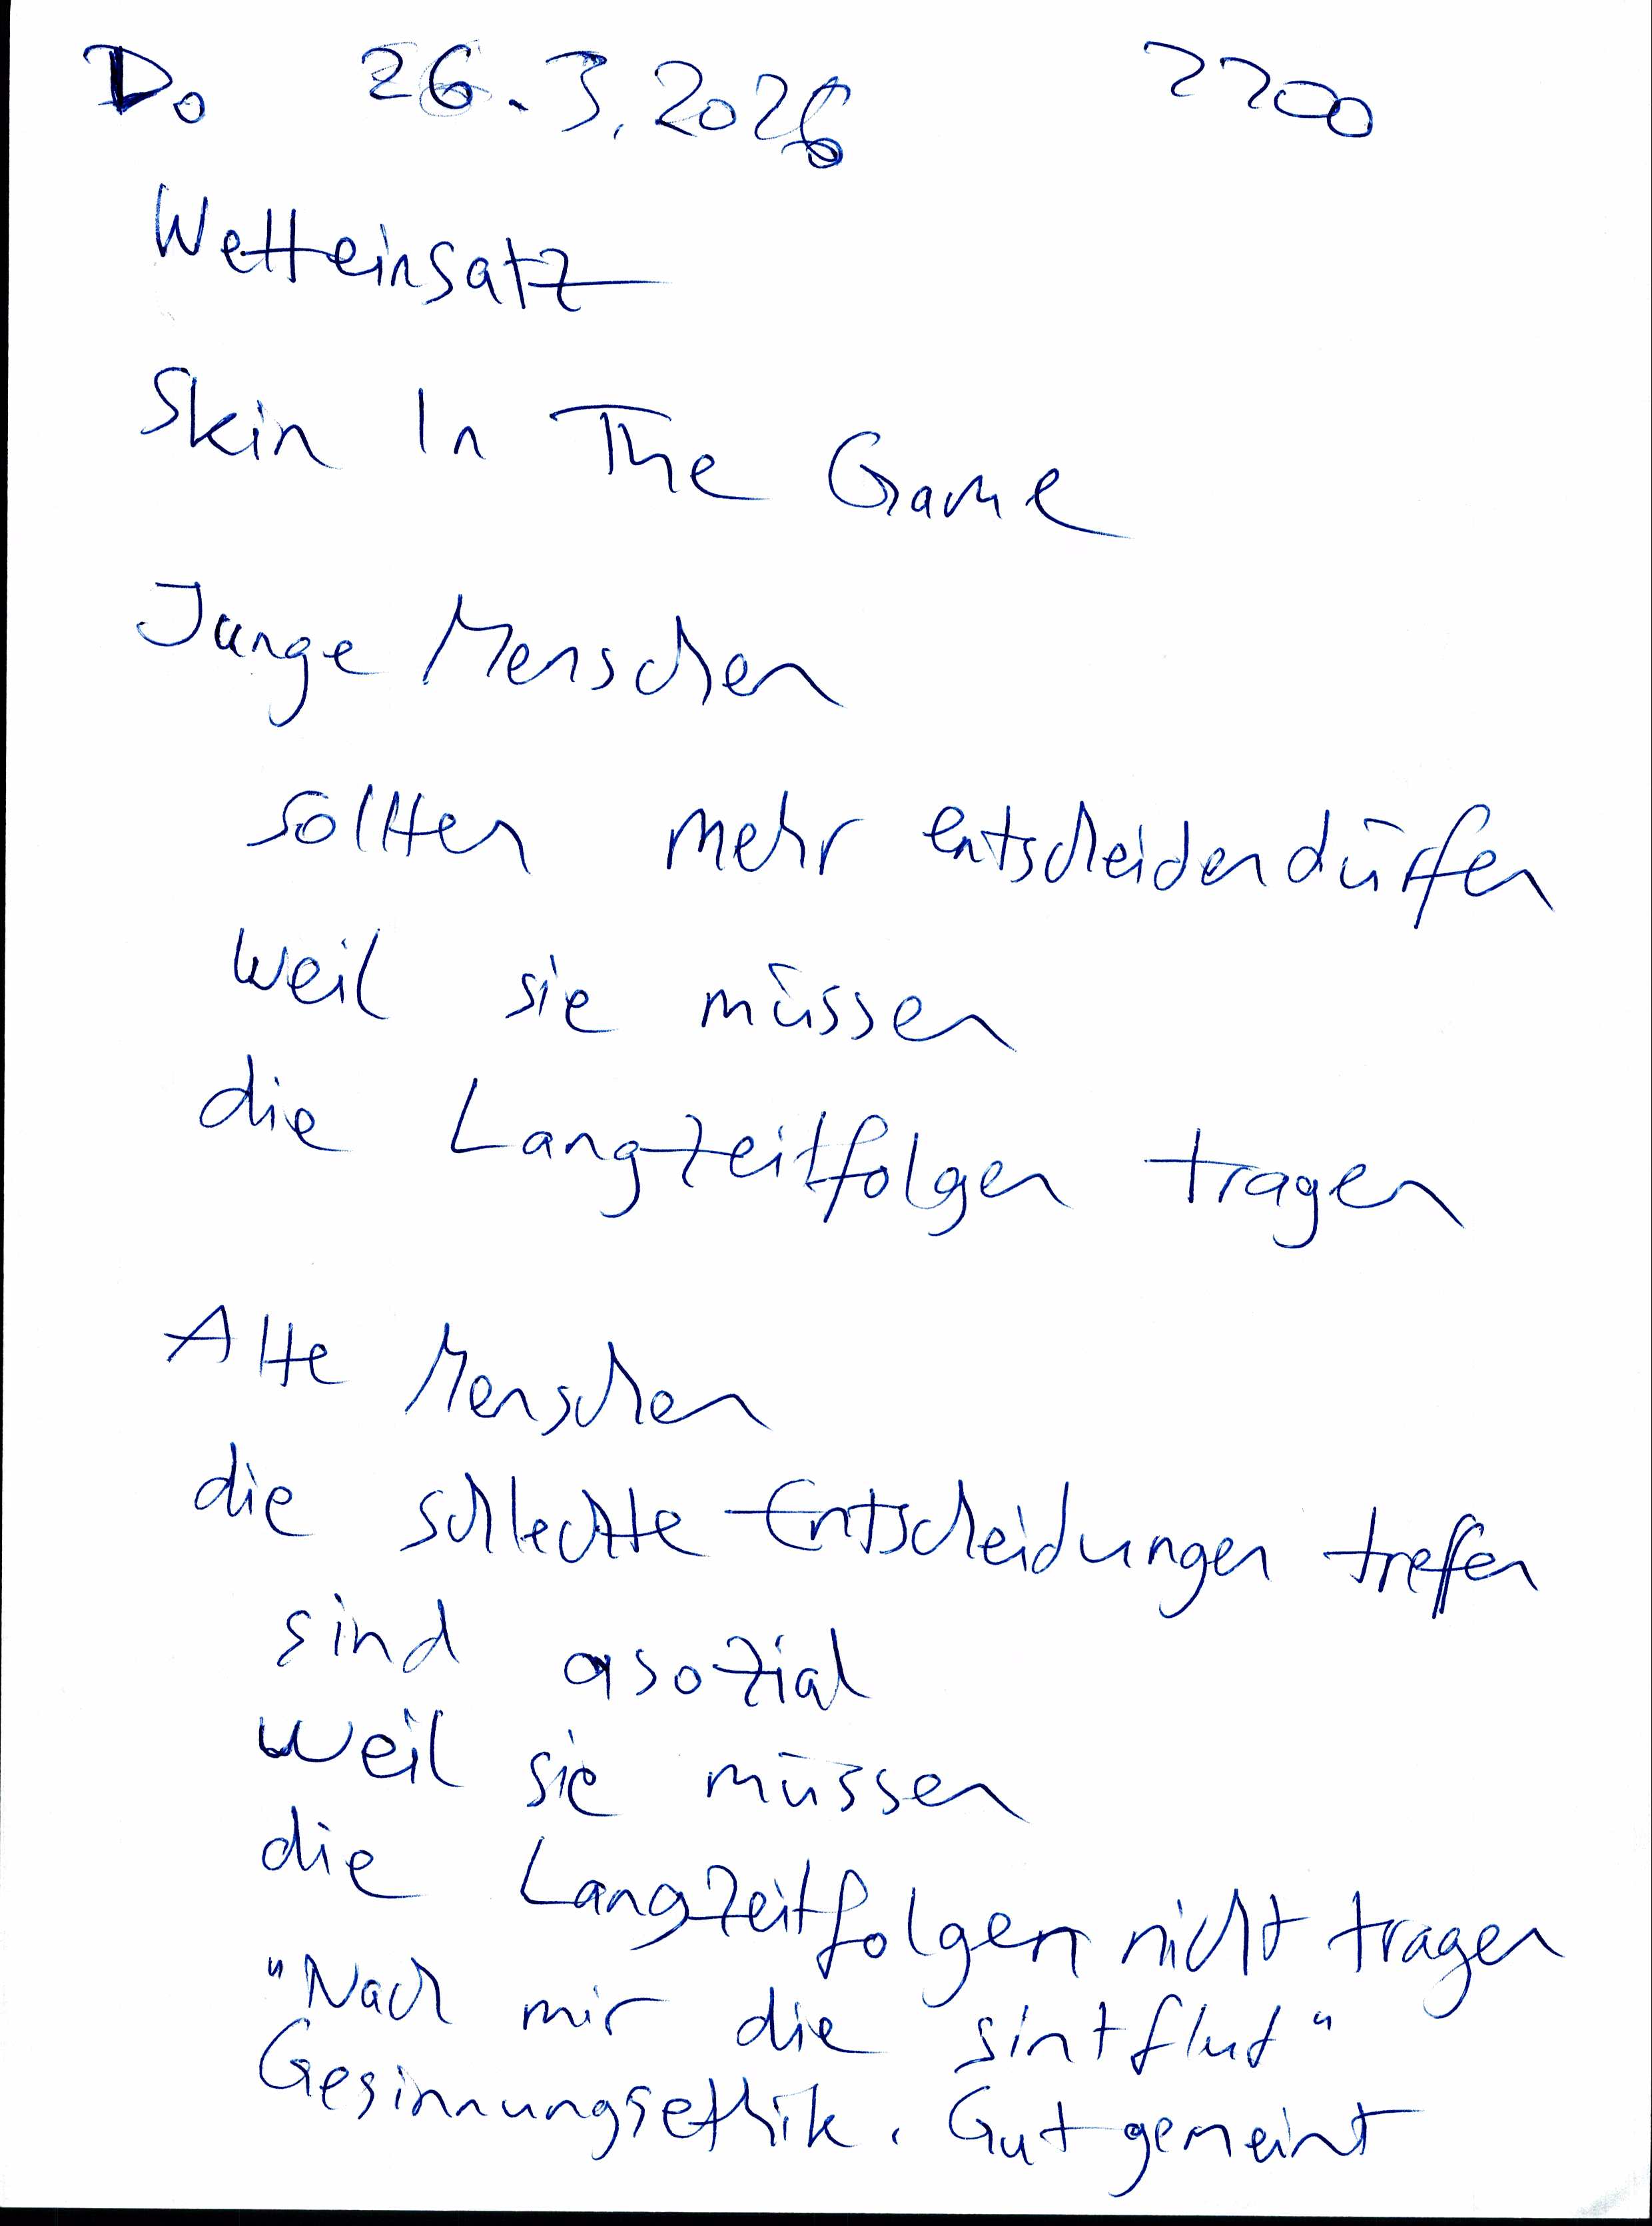 Do 26.3.2026 2200
Wetteinsatz
Skin In The Game
Junge Menschen
sollten mehr entscheiden dürfen
weil sie müssen
die Langzeitfolgen tragen
Alte Menschen
die schlechte Entscheidungen treffen
sind asozial
weil sie müssen
die Langzeitfolgen nicht tragen
"Nach mir die sintflut"
Gesinnungsethik. Gut gemeint